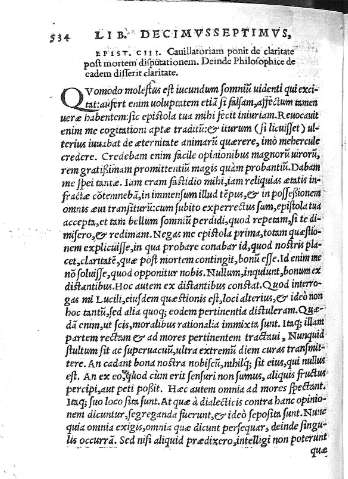 534 LIB. DECIMVSSEPTIMVS,
EPIST. CIII. Cauillatoriam ponit de claritate
post mortem disputationem. Deinde Philosophice de
eadem disserit claritate.
QVomodo molestus est iucundum somniũ uidenti qui exci-
tat: aufert enim uoluptatem etiã si falsam, affectum tamen
ueræ habentem: sic epistola tua mihi fecit iniuriam. Reuocauit
enim me cogitationi aptæ traditũ: & iturum (si licuisset) ul-
terius iuuabat de æternitate animarũ quærere, imò mehercule
credere. Credebam enim facile opinionibus magnorũ uirorũ,
rem gratissimam promittentiũ magis quàm probantiũ. Dabam
me spei tantæ. Iam eram fastidio mihi, iam reliquias ætatis in-
fractæ cõtemnebã, in immensum illud tẽpus, & in possessionem
omnis æui transiturus: cum subito experrectus sum, epistola tua
accepta, et tam bellum somniũ perdidi, quod repetam, si te di-
misero, & redimam. Negas me epistola prima, totam quæstio-
nem explicuisse, in qua probare conabar id, quod nostris pla-
cet, claritatẽ, quæ post mortem contingit, bonũ esse. Id enim me
nõ soluisse, quod opponitur nobis. Nullum, inquiunt, bonum ex
distantibus. Hoc autem ex distantibus constat. Quod interro-
gas mi Lucili, eiusdem quæstionis est, loci alterius, & ideò non
hoc tantũ, sed alia quoq; eodem pertinentia distuleram. Quæ-
dã enim, ut scis, moralibus rationalia immixta sunt. Itaq; illam
partem rectam & ad mores pertinentem tractaui, Nunquid
stultum sit ac superuacuũ, ultra extremũ diem curas transmit-
tere. An cadant bona nostra nobiscũ, nihilq; sit eius, qui nullus
est. An ex eo, quod cùm erit sensuri non sumus, aliquis fructus
percipi, aut peti possit. Hæc autem omnia ad mores spectant.
Itaq; suo loco sita sunt. At quæ à dialecticis contra hanc opinio-
nem dicuntur, segreganda fuerunt, & ideò seposita sunt. Nunc
quia omnia exigis, omnia quæ dicunt persequar, deinde singu-
lis occurrã. Sed nisi aliquid prædixero, intelligi non poterunt
quæ